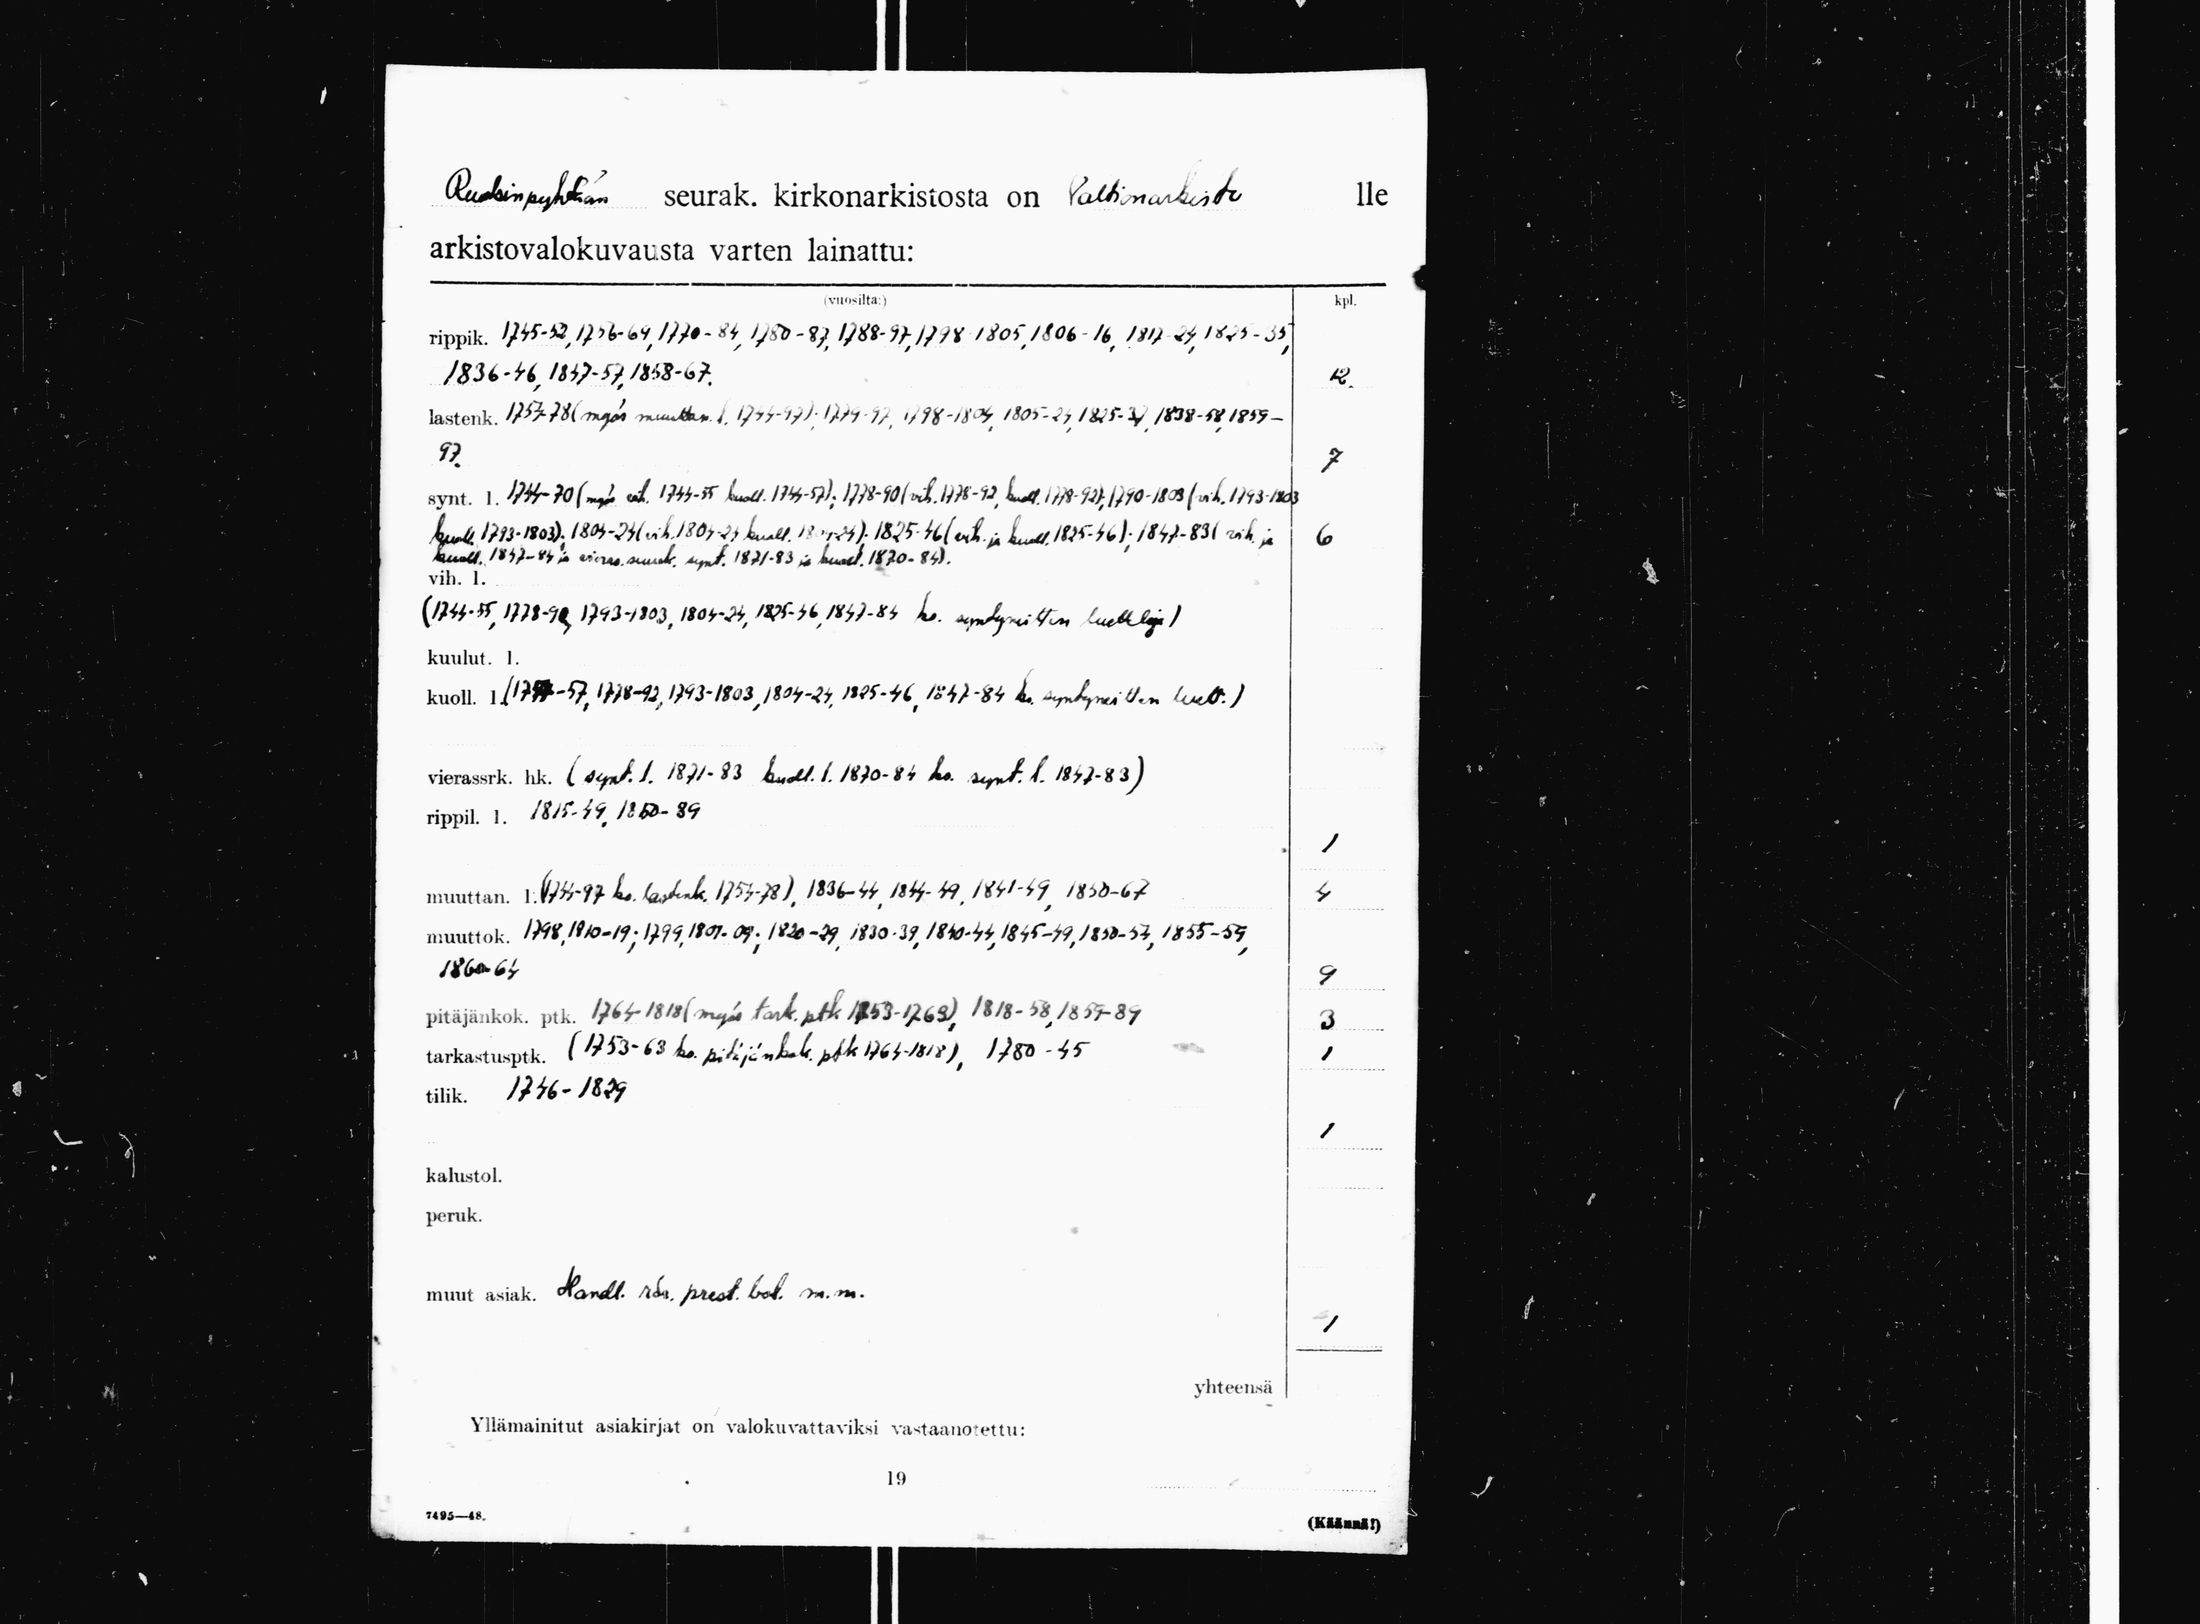 Ruotsinpyhtään seurak. kirkonarkistosta on Valtionarkisto lle
arkistovalokuvausta varten lainattu:
(vuosilta:) kpl.
rippik. 1745-52, 1756-69, 1770-84, 1780-87, 1788-97, 1798-1805, 1806-16, 1817-24, 1825-35,
1836-46, 1847-57, 1858-67. 12.
lastenk. 1754-78 (myös muuttan. l. 1744-97); 1779-97, 1798-1804, 1805-24, 1825-37, 1838-58, 1859-
97. 7
synt. l. 1744-70 (myös vih. 1744-55 kuoll. 1744-57); 1778-90 (vih. 1778-92, kuoll. 1778-92); 1790-1803 (vih. 1793-1803
kuoll. 1793-1803); 1804-24 (vih. 1804-24 kuoll. 1804-24); 1825-46 (vih. ja kuoll. 1825-46); 1847-83 (vih. ja 6
kuoll. 1847-84 ja vieras. seurak. synt. 1871-83 ja kuoll. 1870-84).
vih. l.
(1744-55, 1778-92, 1793-1803, 1804-24, 1825-46, 1847-84 ks. syntyneitten luetteloja)
kuulut. l.
kuoll. l. (1744-57, 1778-92, 1793-1803, 1804-24, 1825-46, 1847-84 ks. syntyneitten luett.)
vierassrk. hk. (synt. l. 1871-83 kuoll. l. 1870-84 ks. synt. l. 1847-83)
rippil. l. 1815-49, 1850-89
1
muuttan. l. (1744-97 ks. lastenk. 1754-78), 1836-44, 1844-49, 1841-49, 1850-67 4
muuttok. 1798, 1810-19; 1799, 1801-09; 1820-29, 1830-39, 1840-44, 1845-49, 1850-54, 1855-59,
1860-64 9
pitäjänkok. ptk. 1764-1818 (myös tark. ptk 1753-1763), 1818-58, 1859-89 3
tarkastusptk. (1753-63 ks. pitäjänkok. ptk 1764-1818), 1780-45 1
tilik. 1746-1829
1
kalustol.
peruk.
muut asiak. Handl. rör. prest. bol. m.m.
1
yhteensä
Yllämainitut asiakirjat on valokuvattaviksi vastaanotettu:
19
7495—48. (Käännä!)